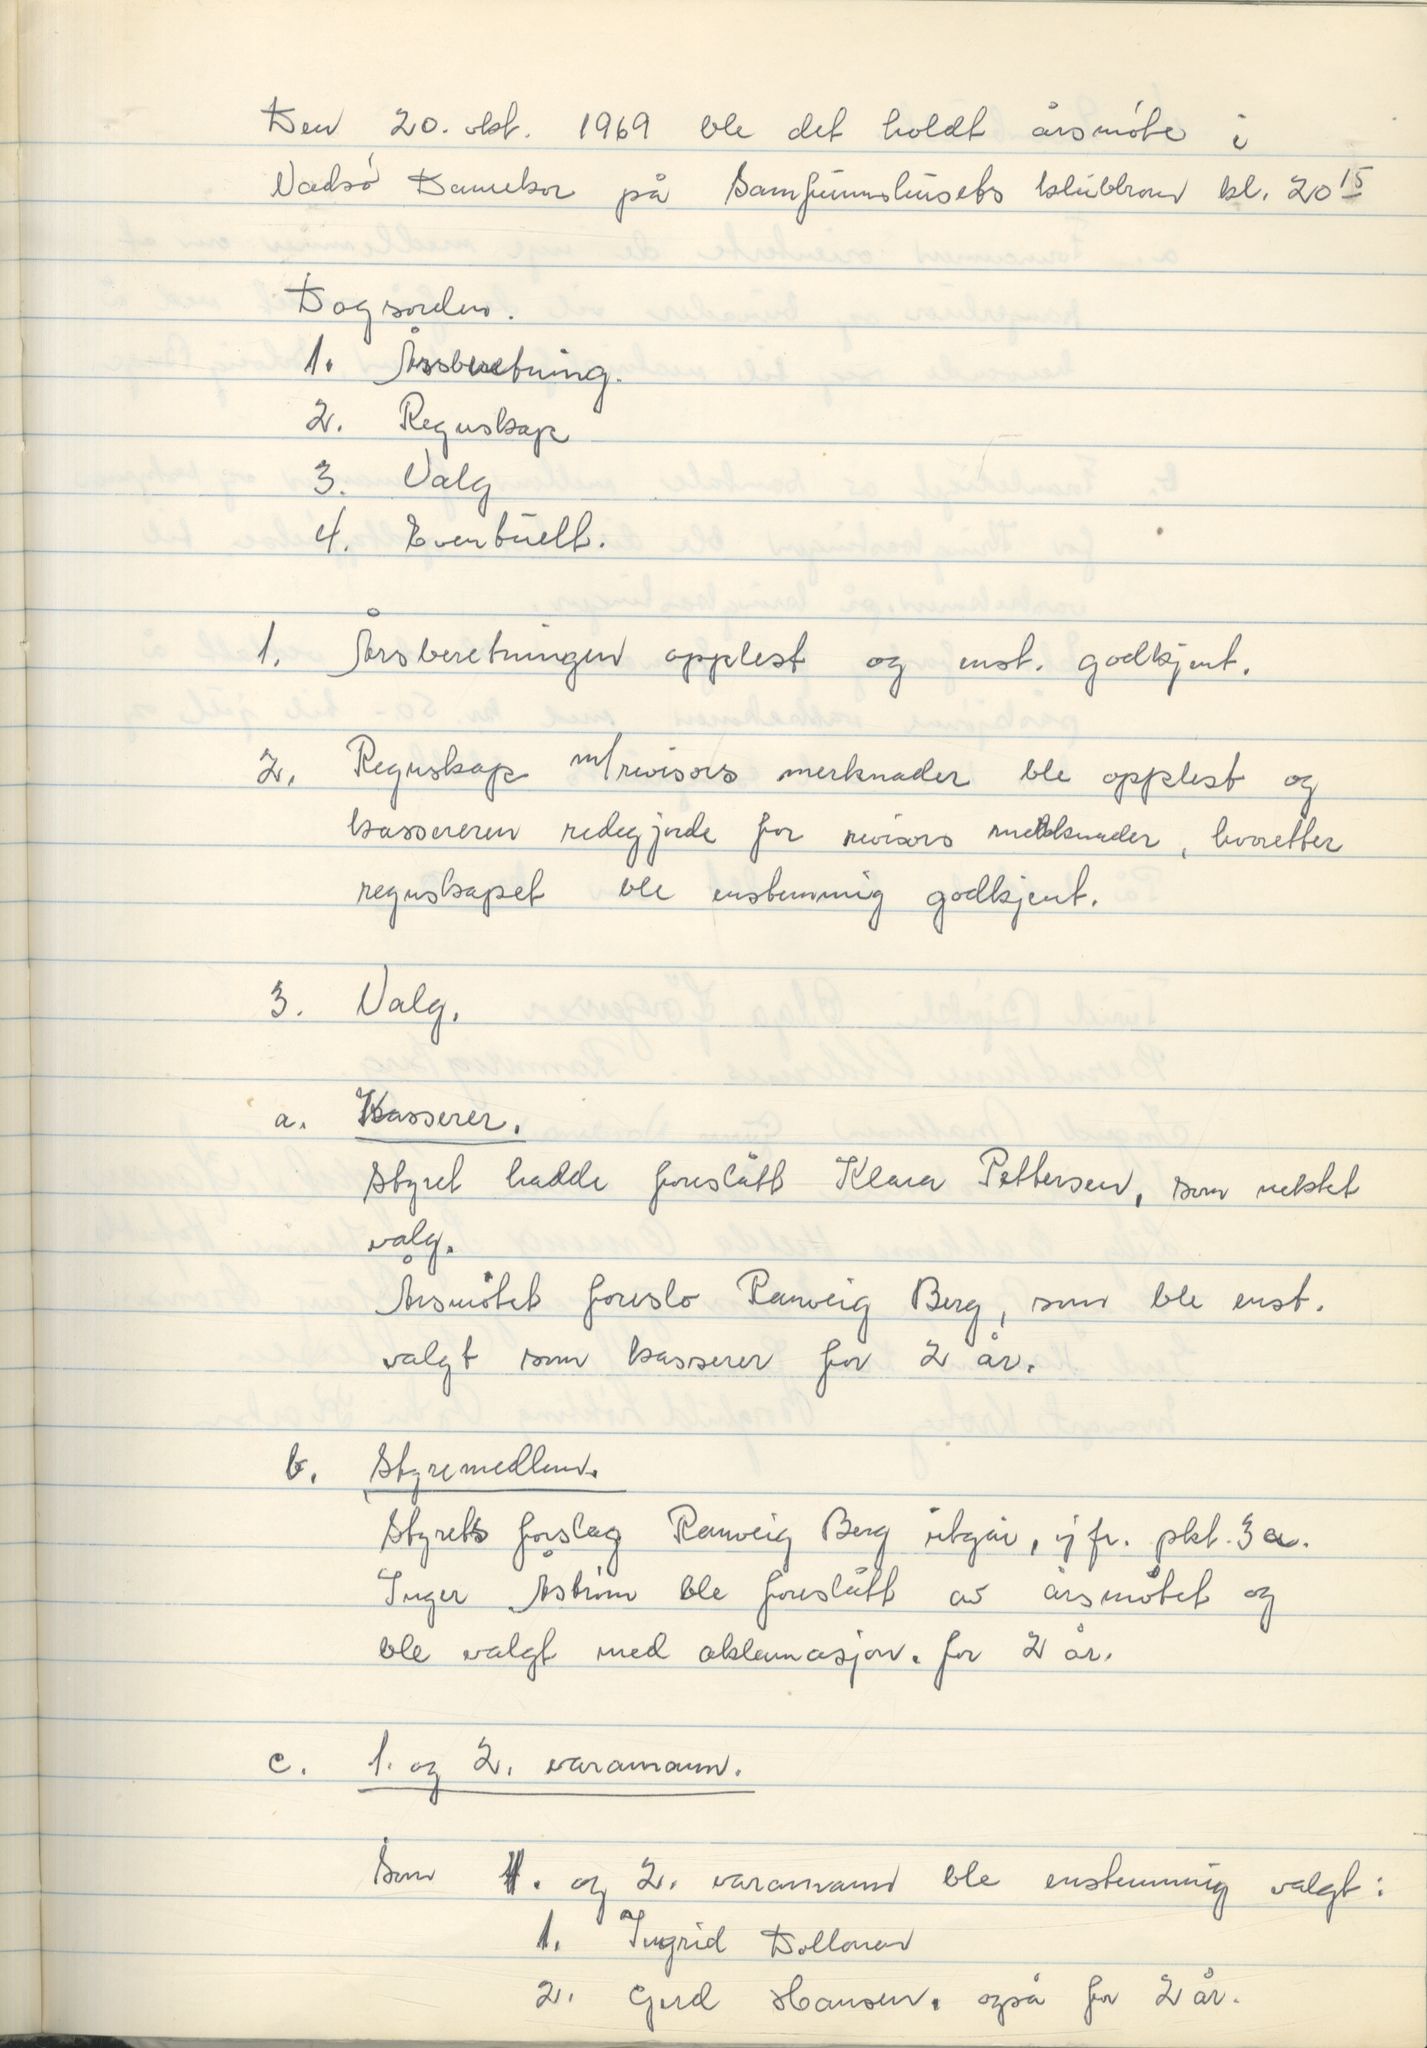 Den 20. okt. 1969 ble det holdt årsmøte i
Vadsø Damekor på Samfunnshusets klubbrom kl. 20 15
Dagsorden.
1. Årsberetning.
2. Regnskap
3. Valg
4. Eventuelt.
1. Årsberetningen opplest og enst. godkjent.
2. Regnskap m/revisors merknader ble opplest og
kassereren redegjorde for revisors merknader, hvoretter
regnskapet ble enstemmig godkjent.
3. Valg.
a. Kasserer.
Styret hadde foreslått Klara Pettersen, som nektet
valg.
Årsmøtet foreslo Ranveig Berg, som ble enst.
valgt som kasserer for 2 år.
b. Styremedlem.
Styrets forslag Ranveig Berg utgår, jfr. pkt. 3 a.
Inger Åstrøm ble foreslått av årsmøtet og
ble valgt med aklamasjon. for 2 år.
c. 1. og 2. varamann.
Som 1. og 2. varamann ble enstemmig valgt:
1. Ingrid
2. Gerd Hansen. også for 2 år.